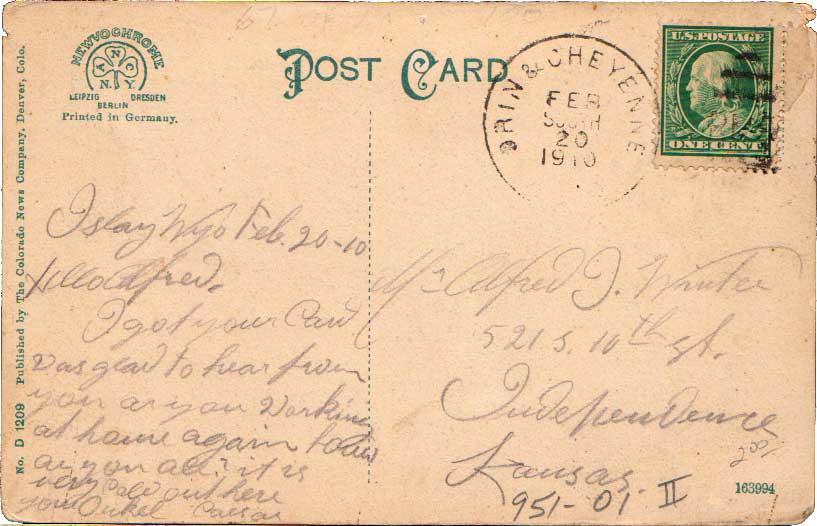 No. D 1209 Published by The Colorado News Company, Denver, Colo.
NEWVOCHROME
A N C
N.Y.
LEIPZIG DRESDEN
BERLIN
Printed in Germany.
POST CARD
ORIN & CHEYENNE
FEB
SOUTH
20
1910
U.S. POSTAGE
ONE CENT
Islay Wyo Feb. 20-10
Hello Alfred.
I got your Card
Was glad to hear from
you ar you Working
at home again
ar you all? it is
very cold out here
your Onkel
Mr Alfred J. Winter
521 S. 10th St.
Independence
Kansas.
951-01 II
163994